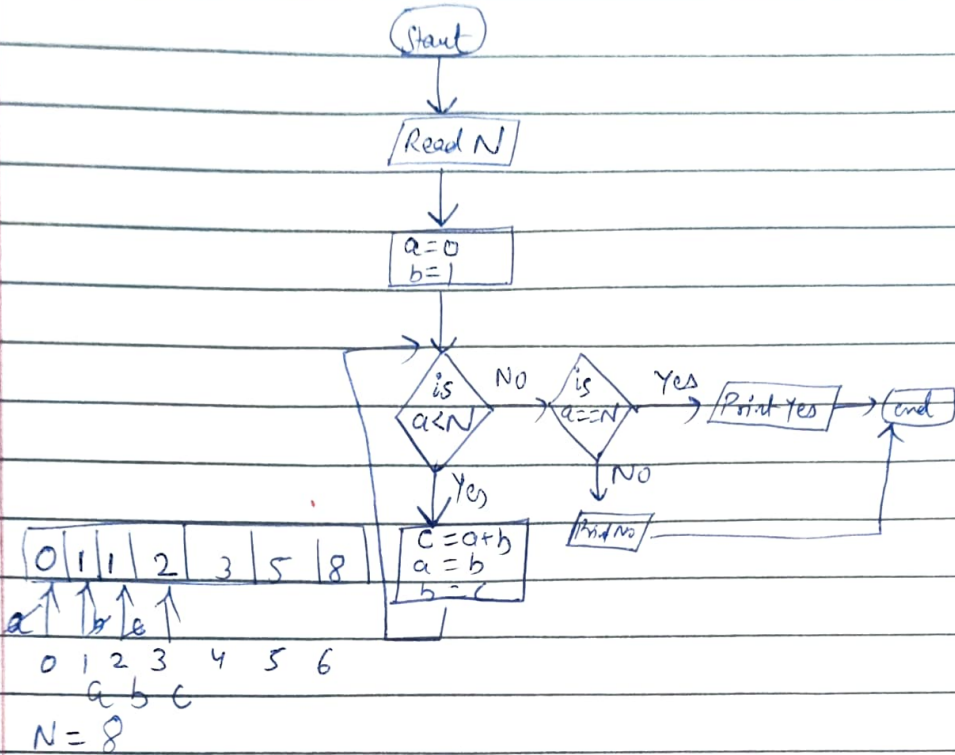 Start
Read N
a=0
b=1
is
a<N
No
is
a==N
Yes
Print Yes
end
No
Print No
Yes
c=a+b
a=b
b=c
0 1 1 2 3 5 8
a b c
0 1 2 3 4 5 6
a b c
N = 8